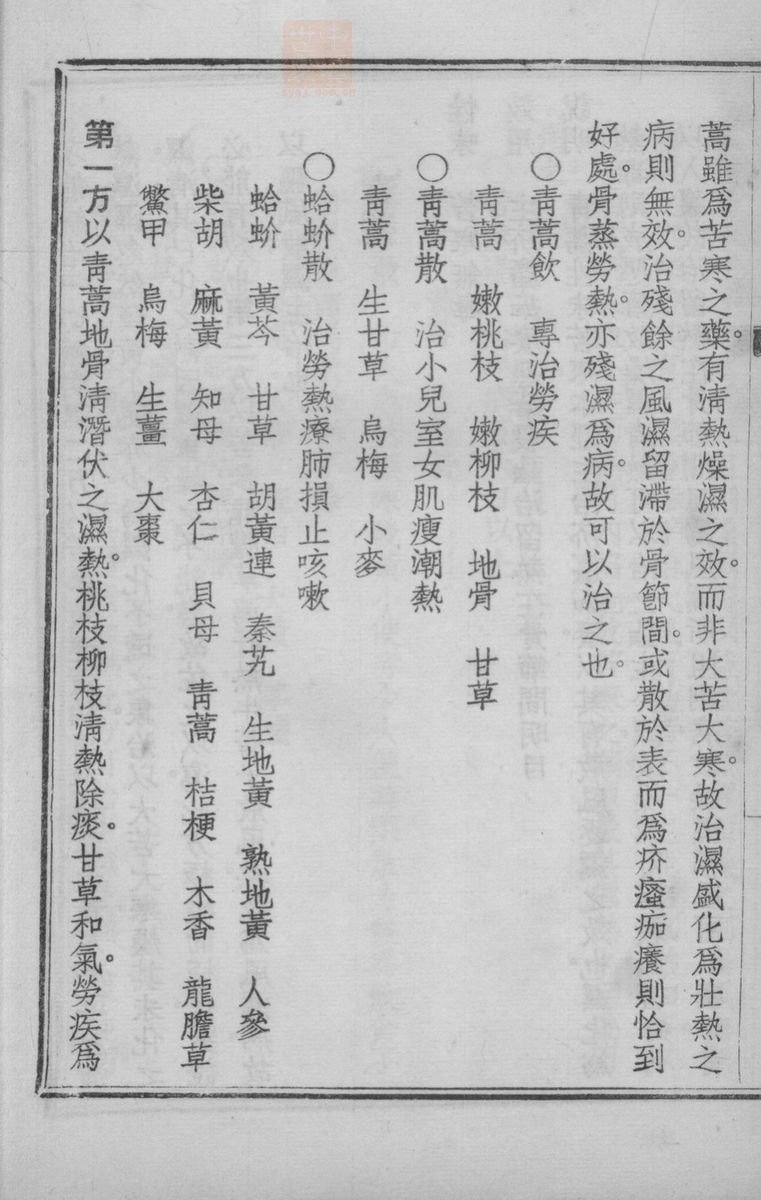 蒿雖爲苦寒之藥。有淸熱燥濕之效。而非大苦大寒。故治濕盛化爲壯熱之
病則無效。治殘餘之風濕留滯於骨節間。或散於表而爲疥癢痂癢則恰到
好處。骨蒸勞熱。亦殘濕爲病。故可以治之也。
○靑蒿飮　專治勞疾
靑蒿　嫩桃枝　嫩柳枝　地骨　甘草
○靑蒿散　治小兒室女肌瘦潮熱
靑蒿　生甘草　烏梅　小麥
○蛤蚧散　治勞熱療肺損止咳嗽
蛤蚧　黃芩　甘草　胡黃連　秦艽　生地黃　熟地黃　人參
柴胡　麻黃　知母　杏仁　貝母　靑蒿　桔梗　木香　龍膽草
鱉甲　烏梅　生薑　大棗
第一方以靑蒿地骨淸潛伏之濕熱。桃枝柳枝淸熱除痰。甘草和氣。勞疾爲